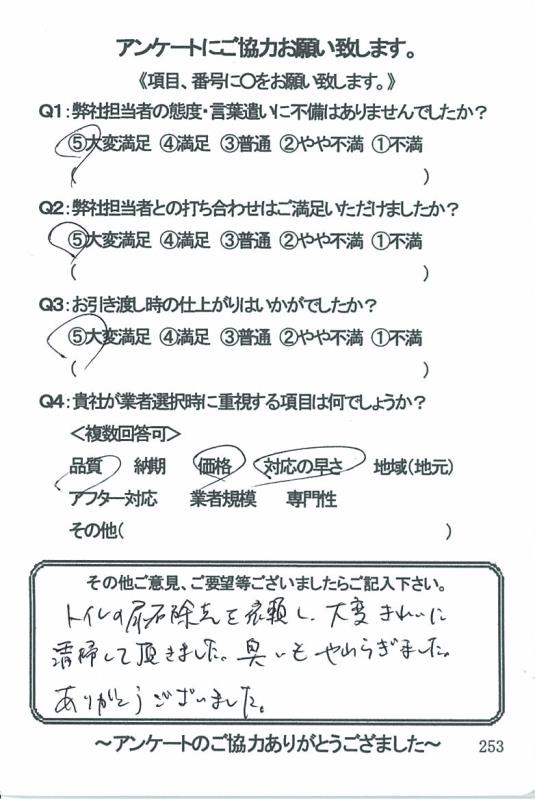 アンケートにご協力お願い致します。
《項目、番号に〇をお願い致します。》
Q1：弊社担当者の態度・言葉遣いに不備はありませんでしたか？
⑤大変満足 ④満足 ③普通 ②やや不満 ①不満
(　　　)
Q2：弊社担当者との打ち合わせはご満足いただけましたか？
⑤大変満足 ④満足 ③普通 ②やや不満 ①不満
(　　　)
Q3：お引き渡し時の仕上がりはいかがでしたか？
⑤大変満足 ④満足 ③普通 ②やや不満 ①不満
(　　　)
Q4：貴社が業者選択時に重視する項目は何でしょうか？
＜複数回答可＞
品質 納期 価格 対応の早さ 地域（地元）
アフター対応 業者規模 専門性
その他(　　　)
その他ご意見、ご要望等ございましたらご記入下さい。
トイレの尿石除去を依頼し、大変きれいに
清掃して頂きました。臭いもやわらぎました。
ありがとうございました。
～アンケートのご協力ありがとうござました～
253